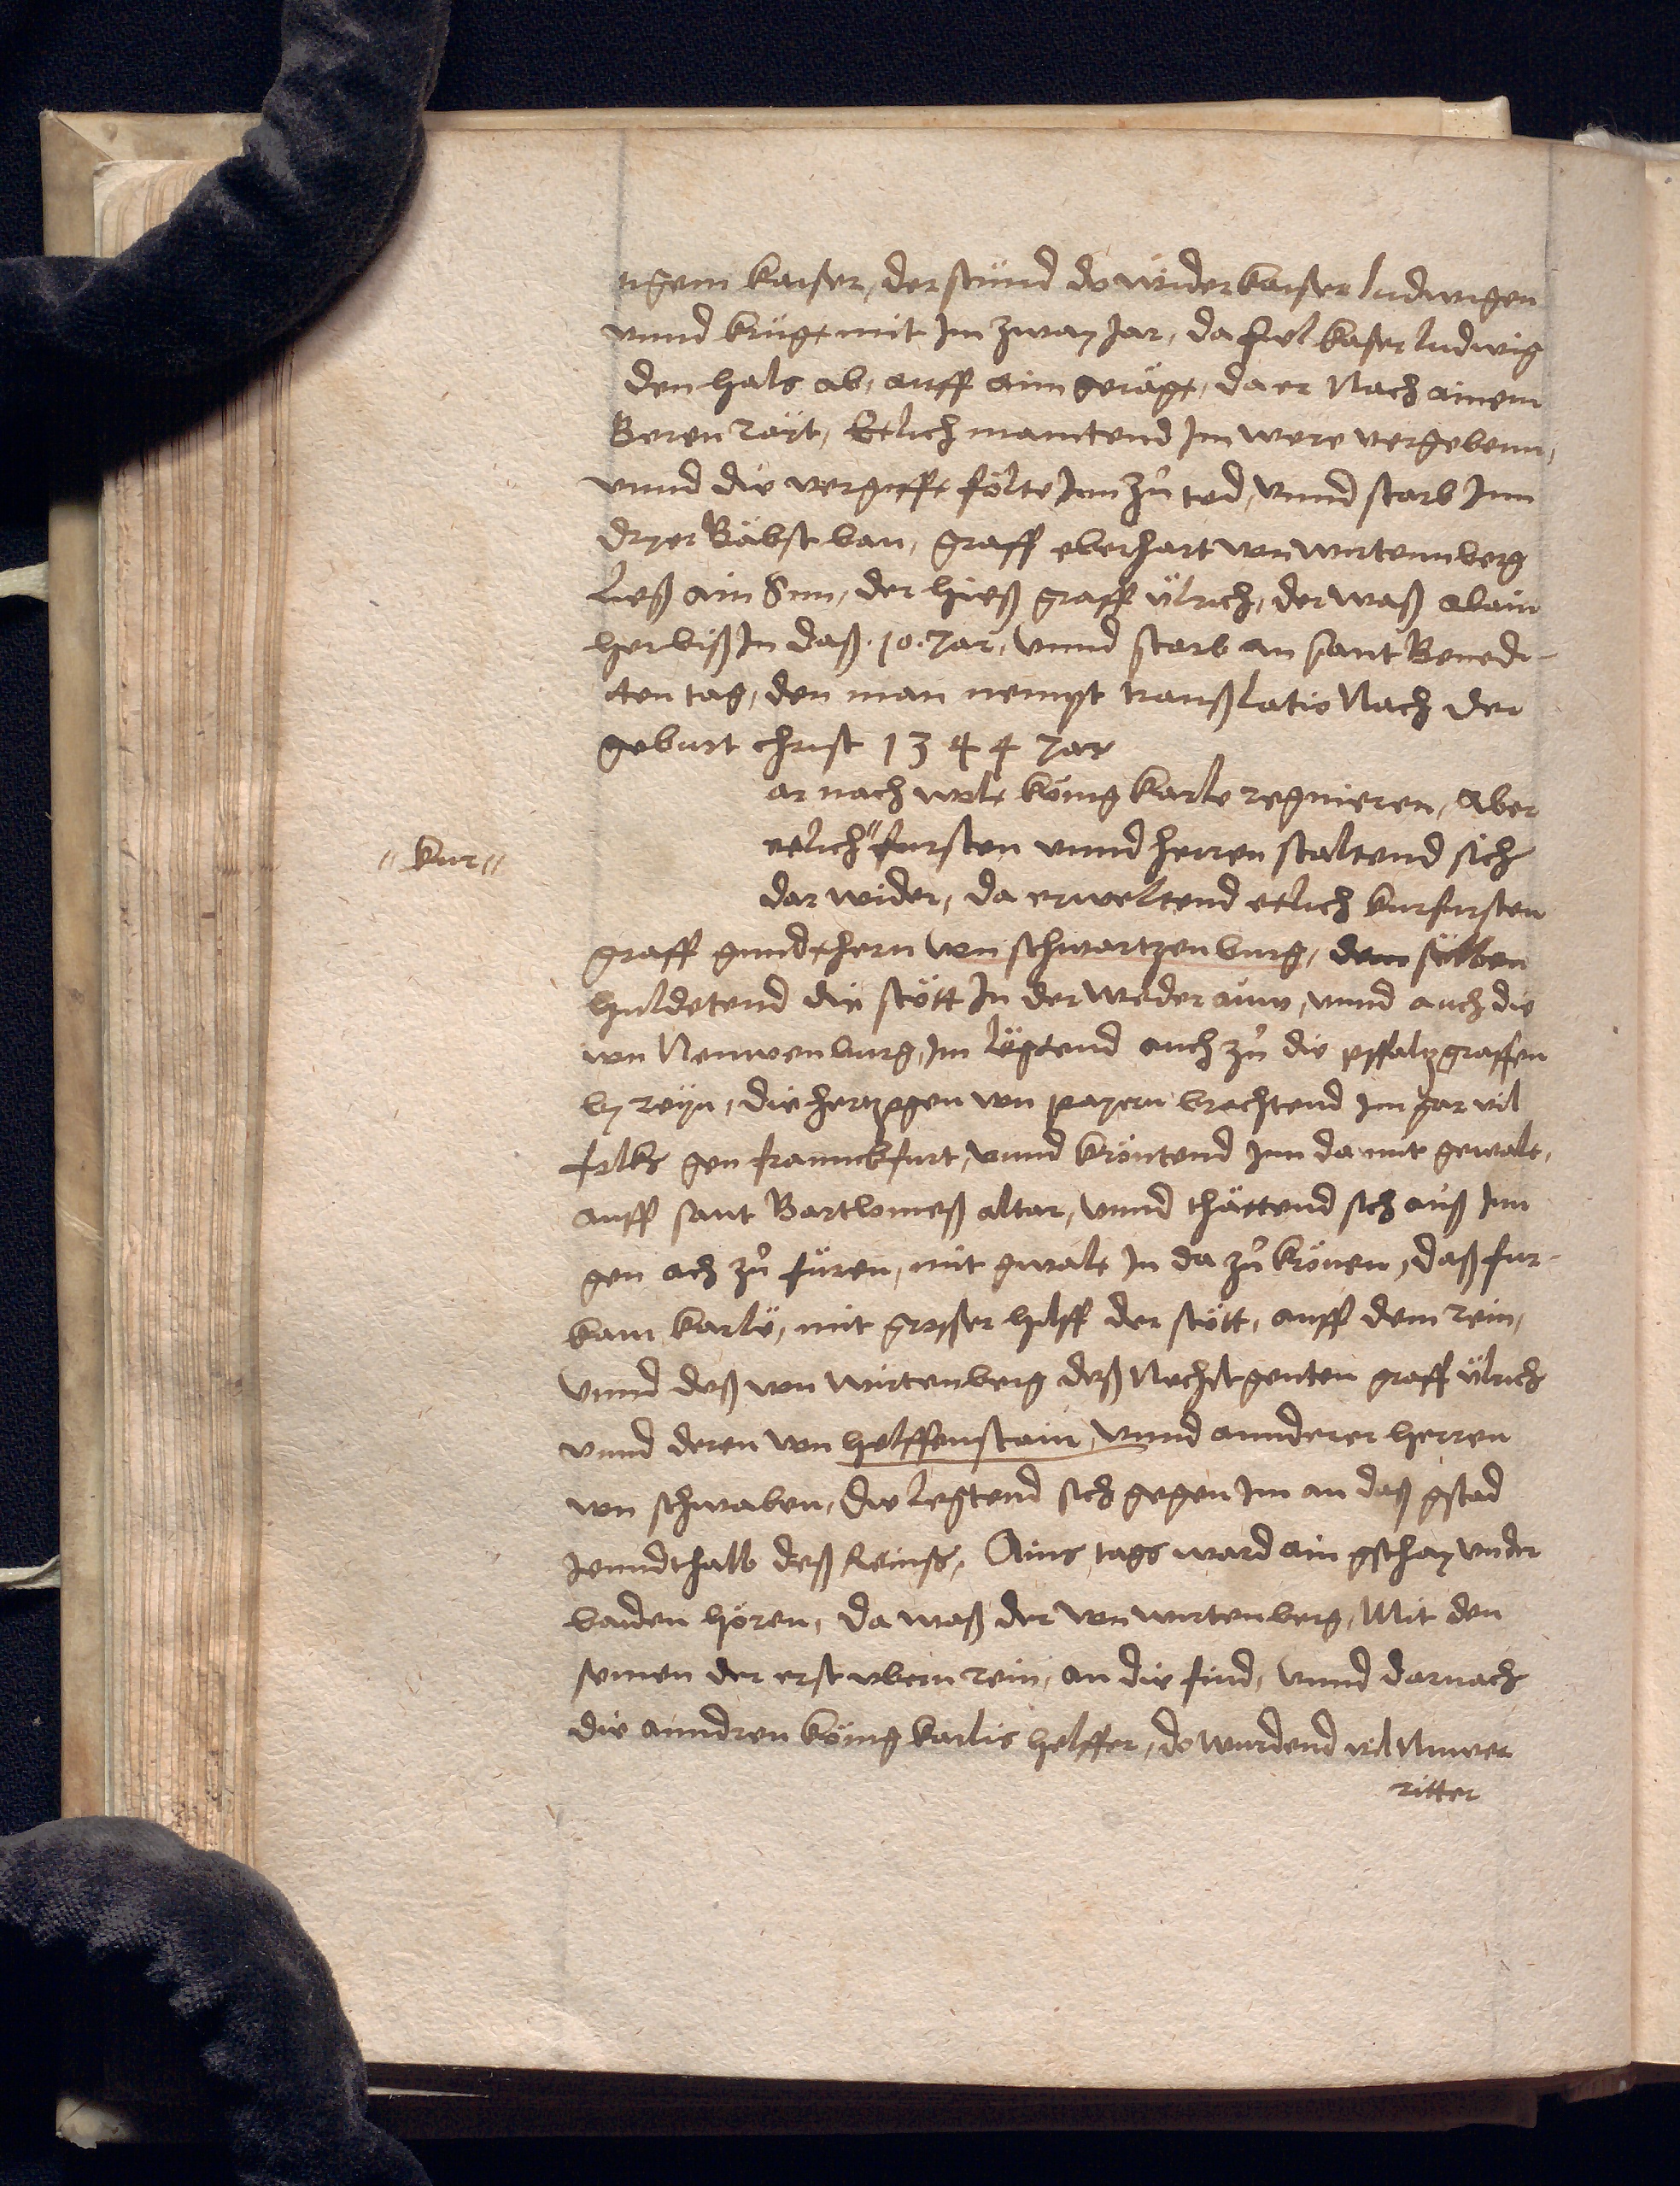 tigem kaiser, der stund do wider kaiser ludwigen
vnnd kriegt mit Im zway Jar, da fiel kaser ludwig
den hals ab, auff aim geiägt, da er Nach ainem
Beren rayt, Etlich maintend Im were vergebenn,
vnnd die vergifft fölte Inn zů tod, vnnd starb Inn
dryer Bäbst ban, graff eberhart von wirtennberg
Ließ ain Sun, der hieß graff ülrich, der waß alain
her biß In daß .10. Jar, vnnd starb an sant Benedi-
cten tag, den man nempt tranßlatio Nach der
geburt christ 1344 Jar
ar nach wolt könig karle regnieren, Aber
etlich " fursten vnnd herren staltend sich
" kur "
dar wider, da erweltend etlich kurfursten
graff gundthern von schwartzenburg, dem selben
huldetend die stött In der wederauw, vnnd auch die
von Neuwenburg, Im lögtend auch zů die pffaltzgraffen
by reyn, die hertzogen von payern brachtend Im gar vil
folks gen frannckfurt, vnnd kröntend Inn da mit gewalt,
auff sant Bartlomeß altar, vnnd thättend sich auß Inn
gen ach zů füren, mit gwalt In da zů krönen, daß fur-
kam karle, mit groser hilff der stött, auff dem rein,
vnnd deß von wirtenberg deß Nechstgenten graff ülrich
vnnd deren von helffenstain, vnnd annderer herren
von schwaben, die legtend sich gegen Im an daß gstad
Jenndthalb deß Reinß, Ains tags ward ain gschay vnder
baiden hören, da waß der von wirtenberg, Mit den
seinen der erst vbern rein, an die find, vnnd darnach
die anndren könig karlis helffer, do wurdend vil Nuwer
ritter